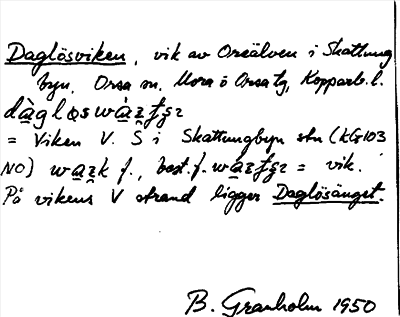 Daglösviken, vik av Oreälven i Skattung
byn, Orsa sn. Mora ö Orsa tg, Kopparb. l.
= Viken V. S i Skattungbyn stn (kG103
NO) f., best. f. = vik.
På vikens V strand ligger Daglösänget.
B. Granholm 1950